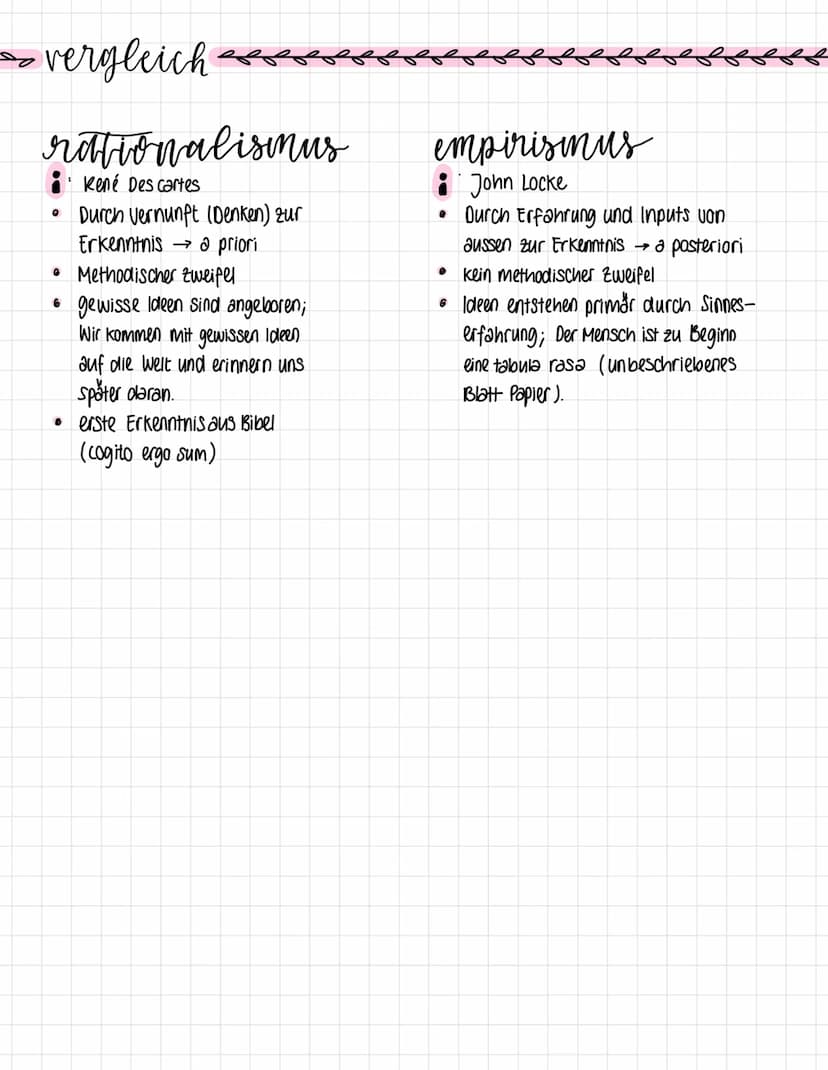 vergleich
rationalismus
René Descartes
Durch Vernunft (Denken) zur
Erkenntnis → a priori
Methodischer Zweifel
gewisse Ideen sind angeboren;
Wir kommen mit gewissen Ideen
auf die Welt und erinnern uns
später daran.
erste Erkenntnis aus Bibel
(cogito ergo sum)
empirismus
John Locke
Durch Erfahrung und Inputs von
aussen zur Erkenntnis → a posteriori
kein methodischer Zweifel
Ideen entstehen primär durch Sinnes-
erfahrung; Der Mensch ist zu Beginn
eine tabula rasa (unbeschriebenes
Blatt Papier).